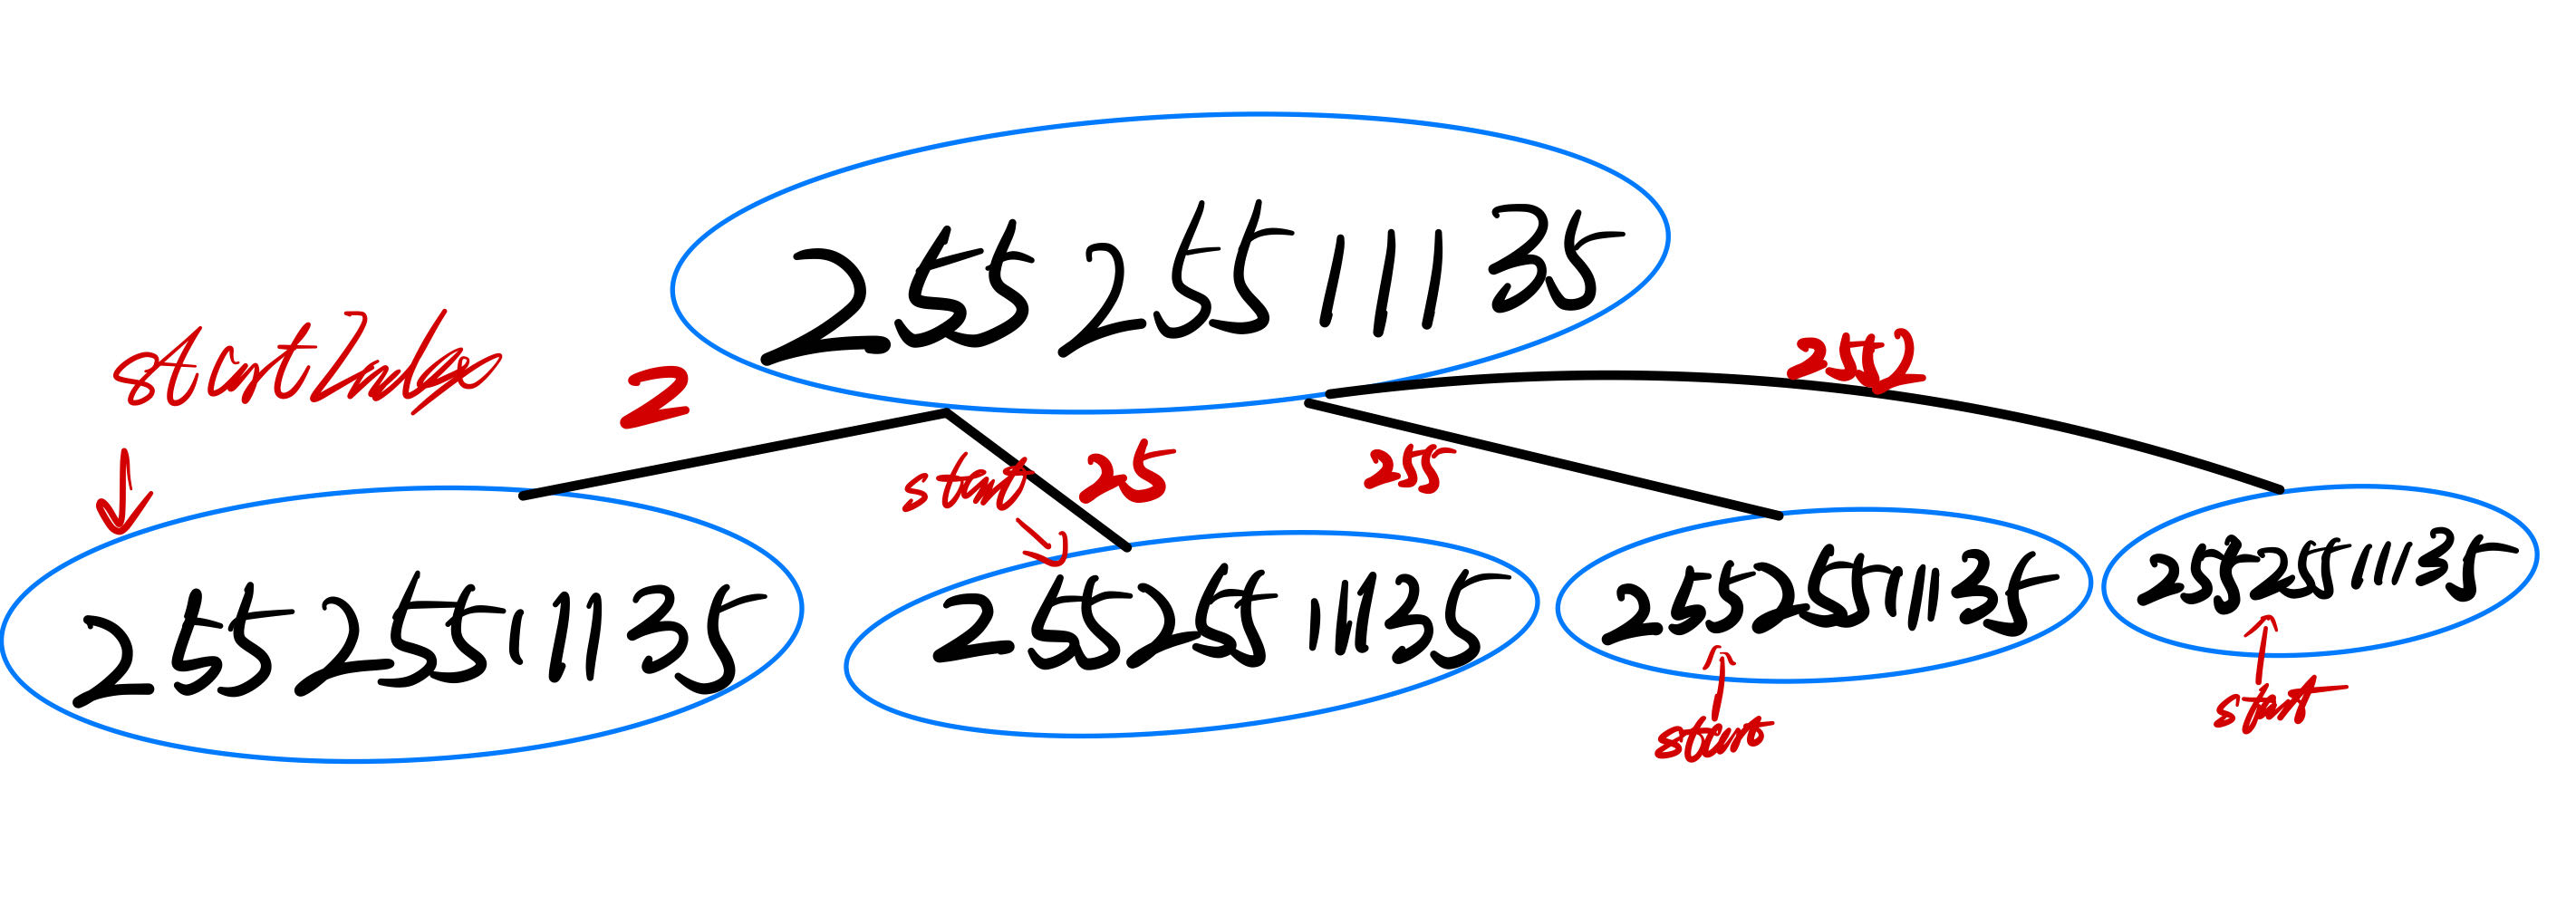 25525511135
startIndex
2
2552
start
25
255
25525511135
25525511135
25525511135
25525511135
start
start